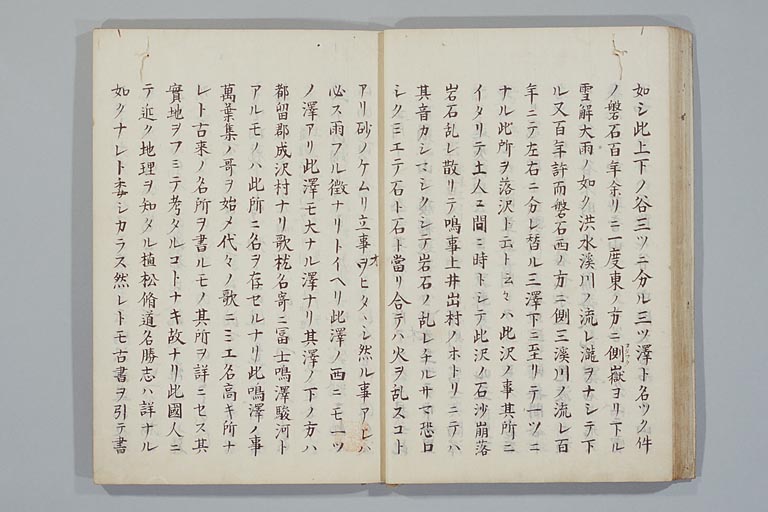 如シ此上下ノ谷三ツニ分ル三ツ澤ト名ツク件
ノ磐石百年余リニ一度東ノ方ニ側嶽ヨリ下ル
雪解大雨ノ如ク洪水溪川ノ流レ瀧ヲナシテ下
ル又百年許而磐石西ノ方ニ側三溪川ノ流レ百
年ニテ左右ニ分レ替ル三澤下ニ至リテ一ツニ
ナル此所ヲ落沢ト云ト云々ハ此沢ノ事其所ニ
イタリテ土人ニ間ニ時トシテ此沢ノ石沙崩落
岩石乱レ散リテ鳴事上井出村ノホトリニテハ
其音カシマシクシテ岩石ノ乱レチルサマ恐ロ
シクミエテ石ト石ト當リ合テハ火ヲ乱スコト
アリ砂ノケムリ立事オヒタヽシ然ル事アレハ
必ス雨フル徴ナリトイヘリ此澤ノ西ニモ一ツ
ノ澤アリ此澤モ大ナル澤ナリ其澤ノ下ノ方ハ
都留郡成沢村ナリ歌枕名寄ニ冨士鳴澤駿河ト
アルモノハ此所ニ名ヲ存セルナリ此鳴澤ノ事
萬葉集ノ哥ヲ始メ代々ノ歌ニミエ名高キ所ナ
レト古来ノ名所ヲ書ルモノ其所ヲ詳ニセス其
實地ヲフミテ考タルコトナキ故ナリ此國人ニ
テ近ク地理ヲ知タル植松脩道名勝志ハ詳ナル
如クナレト委シカラス然レトモ古書ヲ引テ書